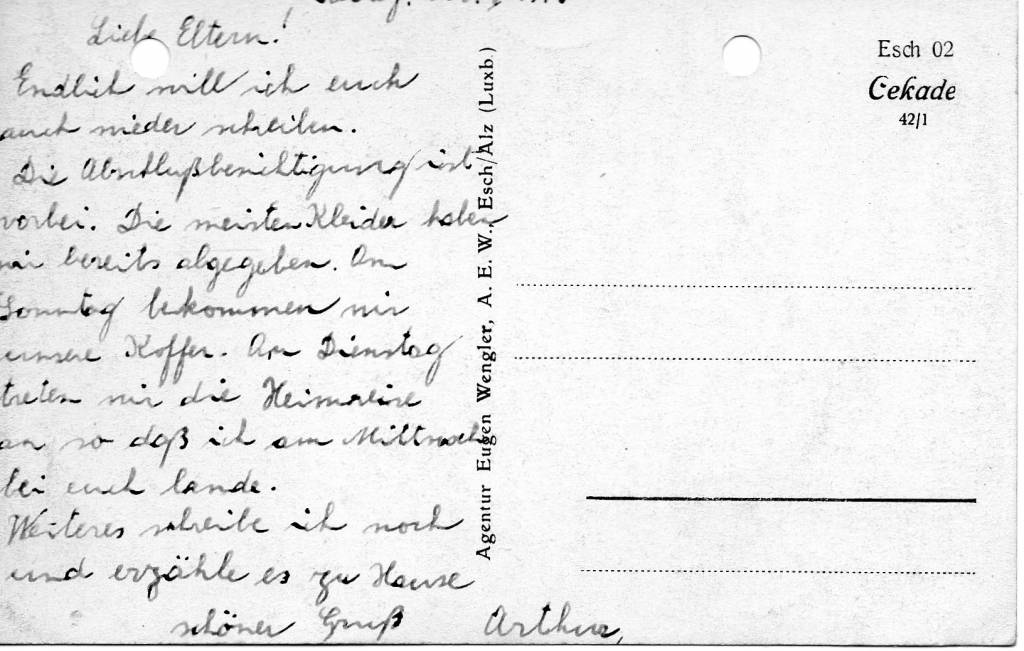 Liebe Eltern!
Endlich will ich euch
auch wieder schreiben.
Die Abschlußbesichtigung ist
vorbei. Die meisten Kleider haben
wir bereits abgegeben. Am
Sonntag bekommen wir
unsere Koffer. Am Dienstag
treten wir die Heimreise
an so daß ich am Mittwoch
bei euch lande.
Weiteres schreibe ich noch
und erzähle es zu Hause
schöner Gruß Arthur,
Agentur Eugen Wengler, A. E. W., Esch/Alz (Luxb.)
Esch 02
Cekade
42/1